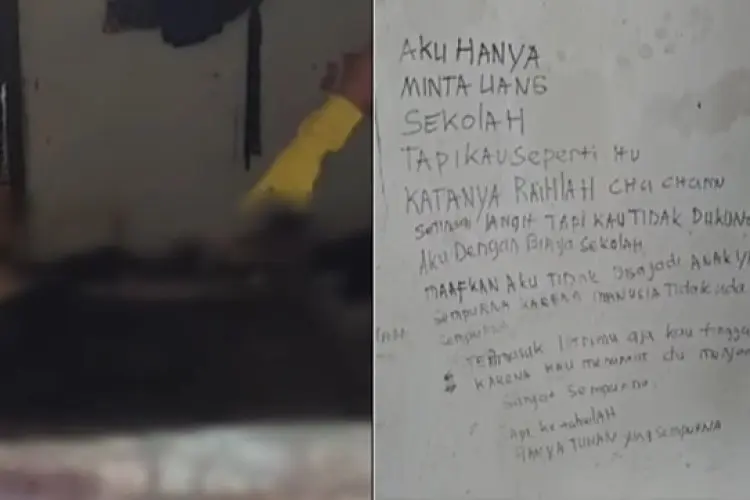 AKU HANYA
MINTA UANG
SEKOLAH
TAPI KAU SEPERTI ITU
KATANYA RAIHLAH CHA CHAMU
LANGIT TAPI KAU TIDAK DUKUNG
AKU DENGAN BIAYA SEKOLAH
MAAFKAN AKU TIDAK BISA JADI ANAK
SEMPURNA KARENA MANUSIA TIDAK ADA
SEMPURNA
TERMASUK ISTRIMU AJA KAU
KARENA KAU MENURUT
SANGAT SEMPURNA
HANYA TUHAN YANG SEMPURNA